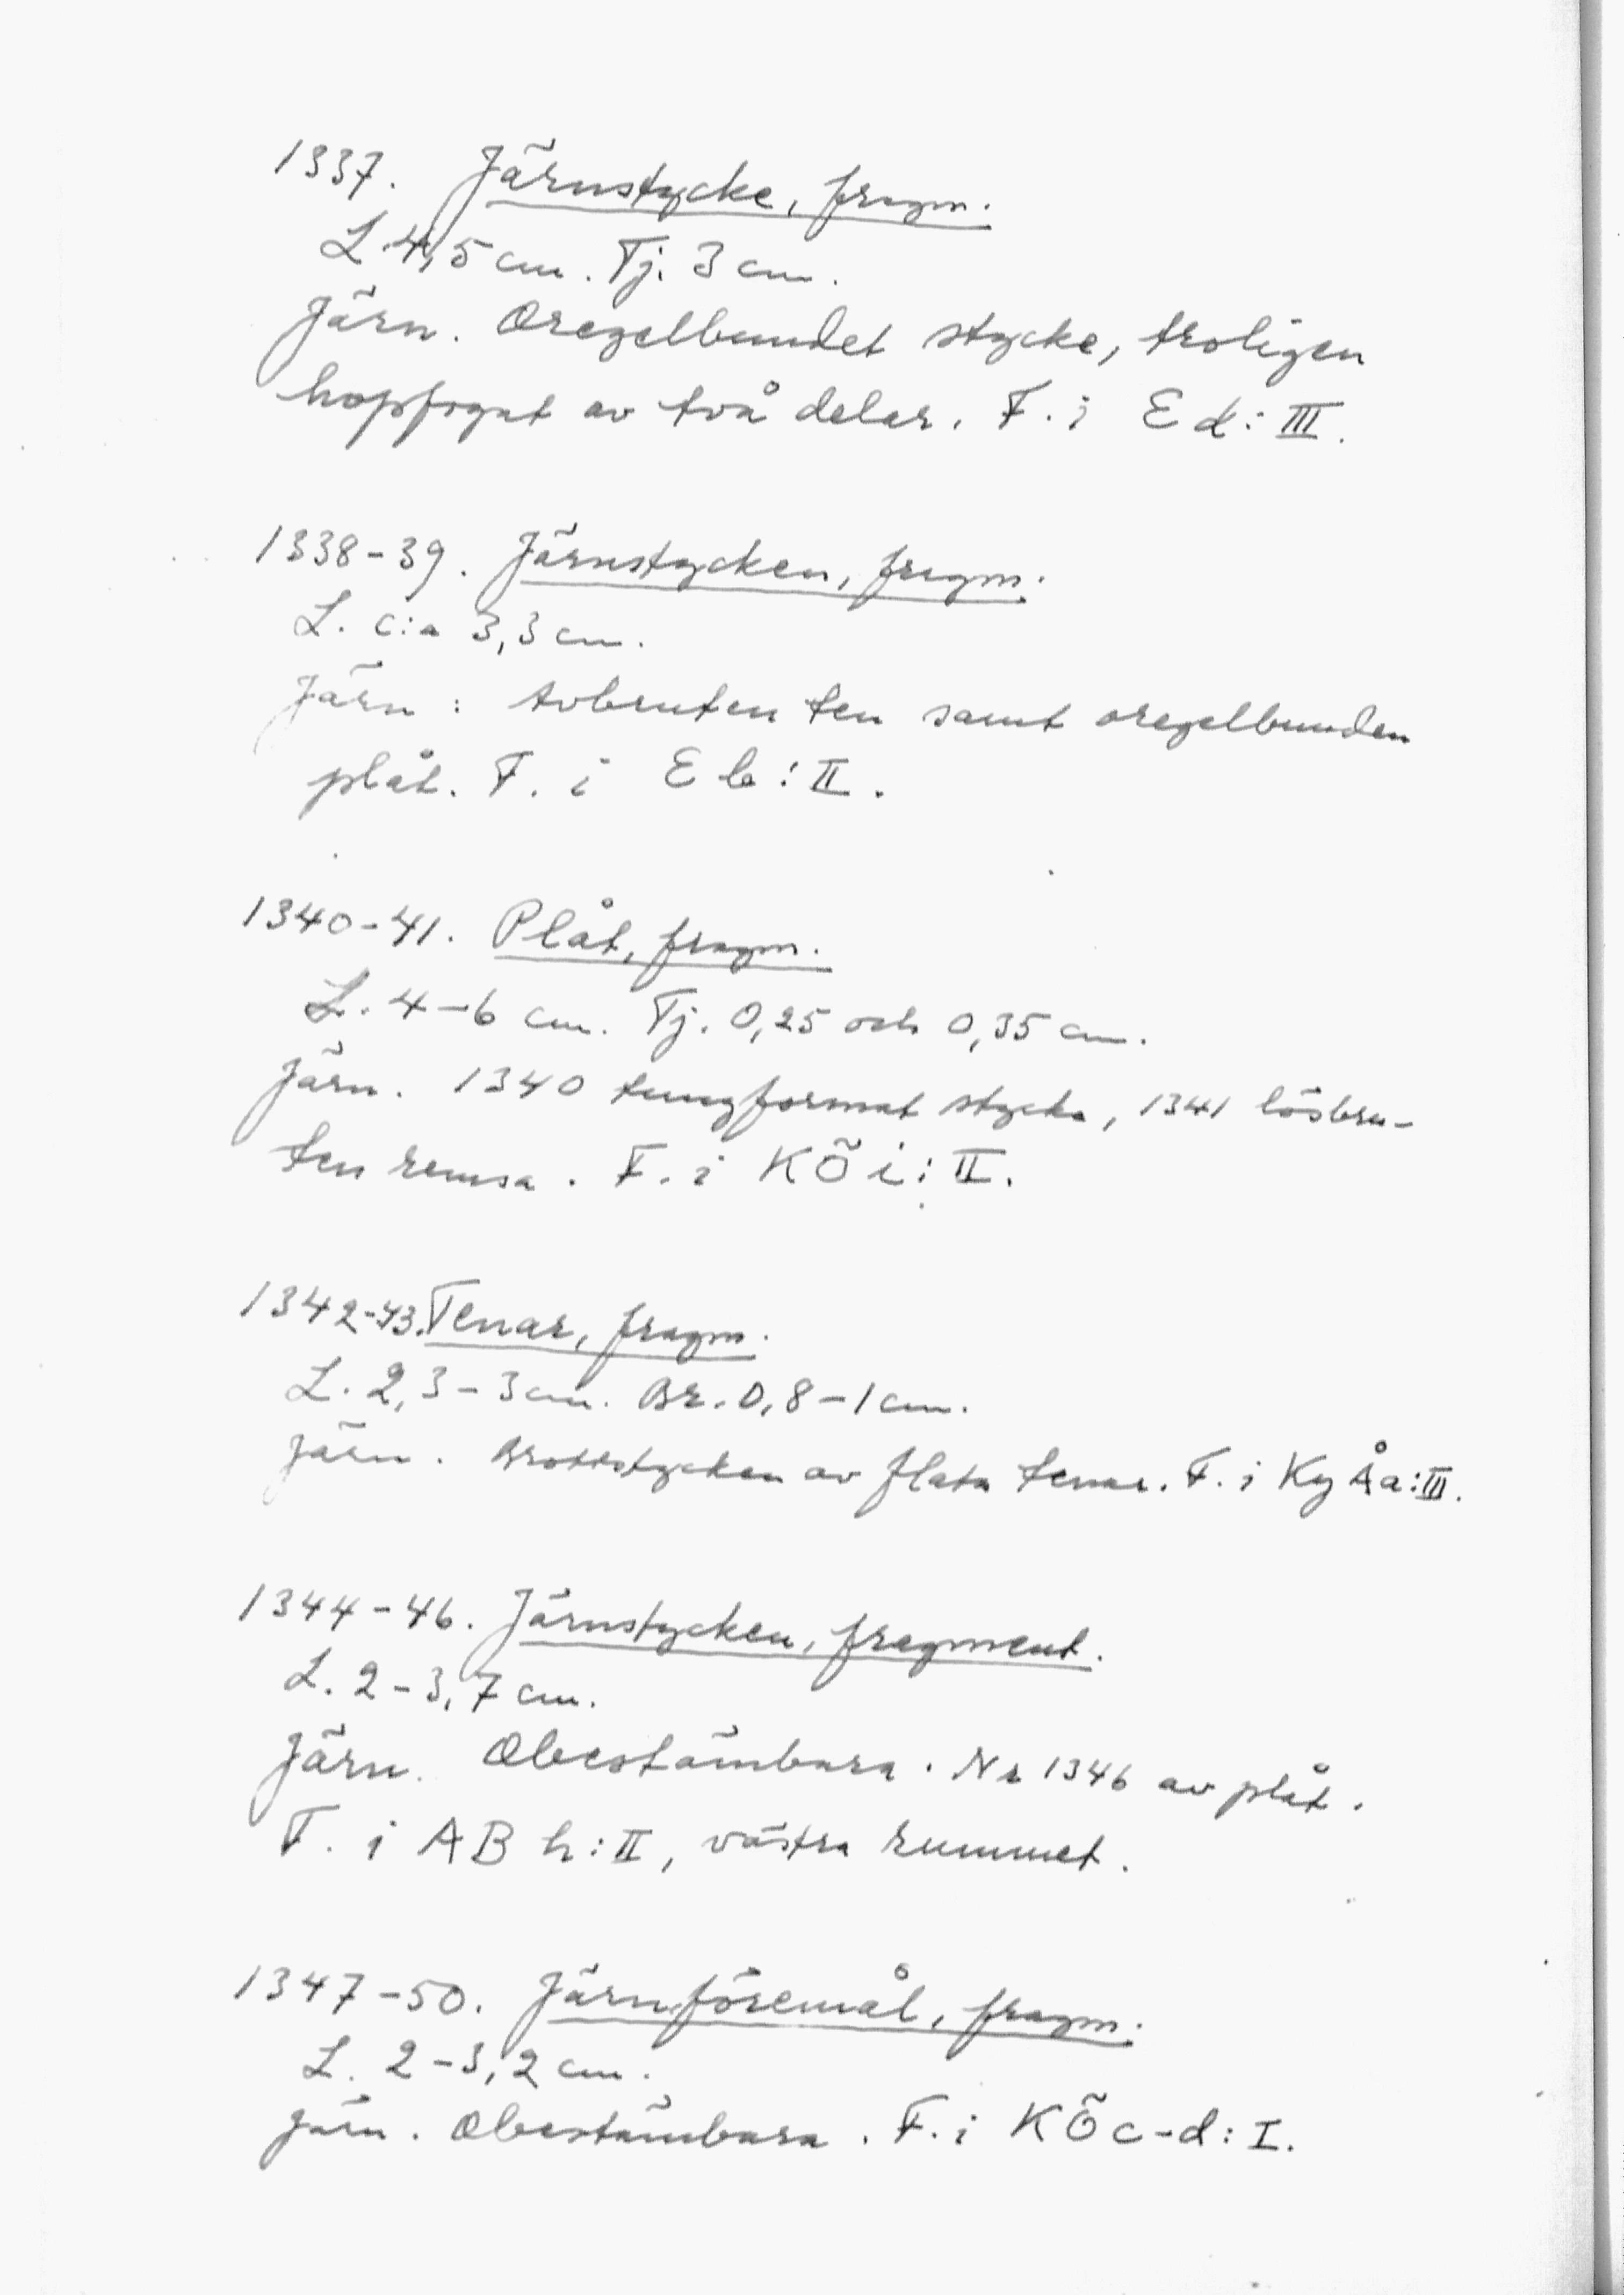 1337. Järnstycke, fragm.
L 4,5 cm. Tj. 3 cm.
Järn. Oregelbundet stycke, troligen
hopfogat av två delar. F. i Ed: III.
1338-39. Järnstycken, fragm.
L. c:a 3,3 cm.
Järn: Avbruten ten samt oregelbunden
plåt. F. i Eb: II.
1340-41. Plåt, fragm.
L. 4-6 cm. Tj. 0,25 och 0,35 cm.
Järn. 1340 tungformat stycke, 1341 lösbru-
ten remsa. F. i KÖi: II.
1342-43. Tenar, fragm.
L. 2,3-3 cm. Br. 0,8-1 cm.
Järn. Brottstycken av flata tenar. F. i Ky Åa: III.
1344-46. Järnstycken, fragment.
L. 2-3,7 cm.
Järn. Obestämbara. Nr 1346 av plåt.
F. i ABh: II, västra rummet.
1347-50. Järnföremål, fragm.
L. 2-3,2 cm.
Järn. Obestämbara. F. i KÖc-d: I.